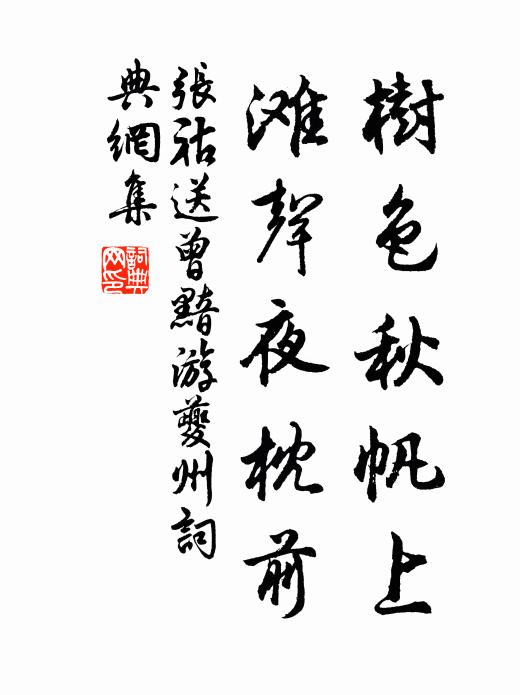 樹色秋帆上
滩聲夜枕前
張祜送曾黯游夔州詞
典網集
詞典
网印